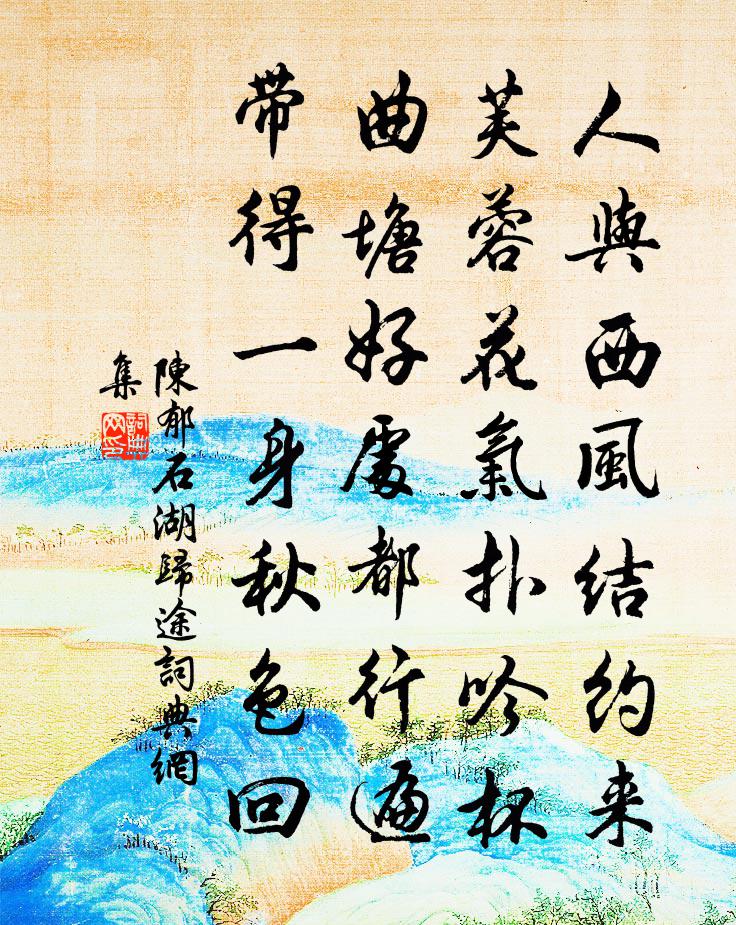 人與西風結約来
芙蓉花氣扑吟杯
曲塘好處都行遍
帶得一身秋色回
陳郁石湖歸途詞典網
集
詞典
网印